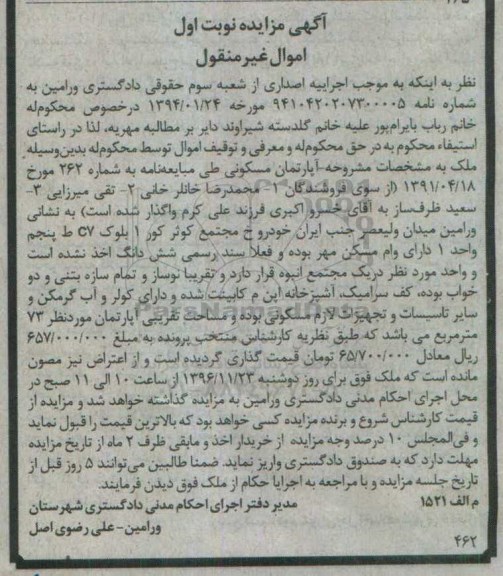 آگهی مزایده نوبت اول
اموال غیرمنقول
نظر به اینکه به موجب اجراییه اصداری از شعبه سوم حقوقی دادگستری ورامین به
شماره نامه ۹۴۱۰۴۲۰۲۰۷۳۰۰۰۰۵ مورخه ۱۳۹۴/۰۱/۲۴ درخصوص محکوم‌له
خانم رباب بایرام‌پور علیه خانم گلدسته شیراوند دایر بر مطالبه مهریه، لذا در راستای
استیفاء محکوم به در حق محکوم‌له و معرفی و توقیف اموال توسط محکوم‌له بدین‌وسیله
ملک به مشخصات مشروحه-آپارتمان مسکونی طی مبایعه‌نامه به شماره ۲۶۲ مورخ
۱۳۹۱/۰۴/۱۸ (از سوی فروشندگان ۱- محمدرضا خانلر خانی ۲- تقی میرزایی ۳-
سعید ظرف‌ساز به آقای خسرو اکبری فرزند علی کرم واگذار شده است) به نشانی
ورامین میدان ولیعصر جنب ایران خودرو خ مجتمع کوثر کور ۱ بلوک C۷ ط پنجم
واحد ۱ دارای وام مسکن مهر بوده و فعلا سند رسمی شش دانگ اخذ نشده است
و واحد مورد نظر در یک مجتمع انبوه قرار دارد و تقریبا نوساز و تمام سازه بتنی و دو
خواب بوده، کف سرامیک، آشپزخانه این ام کابینت شده و دارای کولر و آب گرمکن و
سایر تاسیسات و تجهیزات لازم مسکونی بوده و مساحت تقریبی آپارتمان موردنظر ۷۳
مترمربع می باشد که طبق نظریه کارشناس منتخب پرونده به مبلغ ۶۵۷/۰۰۰/۰۰۰
ریال معادل ۶۵/۷۰۰/۰۰۰ تومان قیمت گذاری گردیده است و از اعتراض نیز مصون
مانده است که ملک فوق برای روز دوشنبه ۱۳۹۶/۱۱/۲۳ از ساعت ۱۰ الی ۱۱ صبح در
محل اجرای احکام مدنی دادگستری ورامین به مزایده گذاشته خواهد شد و مزایده از
قیمت کارشناس شروع و برنده مزایده کسی خواهد بود که بالاترین قیمت را قبول نماید
و فی‌المجلس ۱۰ درصد وجه مزایده از خریدار اخذ و مابقی ظرف ۲ ماه از تاریخ مزایده
مهلت دارد که به صندوق دادگستری واریز نماید. ضمنا طالبین می‌توانند ۵ روز قبل از
تاریخ جلسه مزایده و با مراجعه به اجرایا حکام از ملک فوق دیدن فرمایند.
م الف ۱۵۲۱ مدیر دفتر اجرای احکام مدنی دادگستری شهرستان
ورامین-علی رضوی اصل
۴۶۲